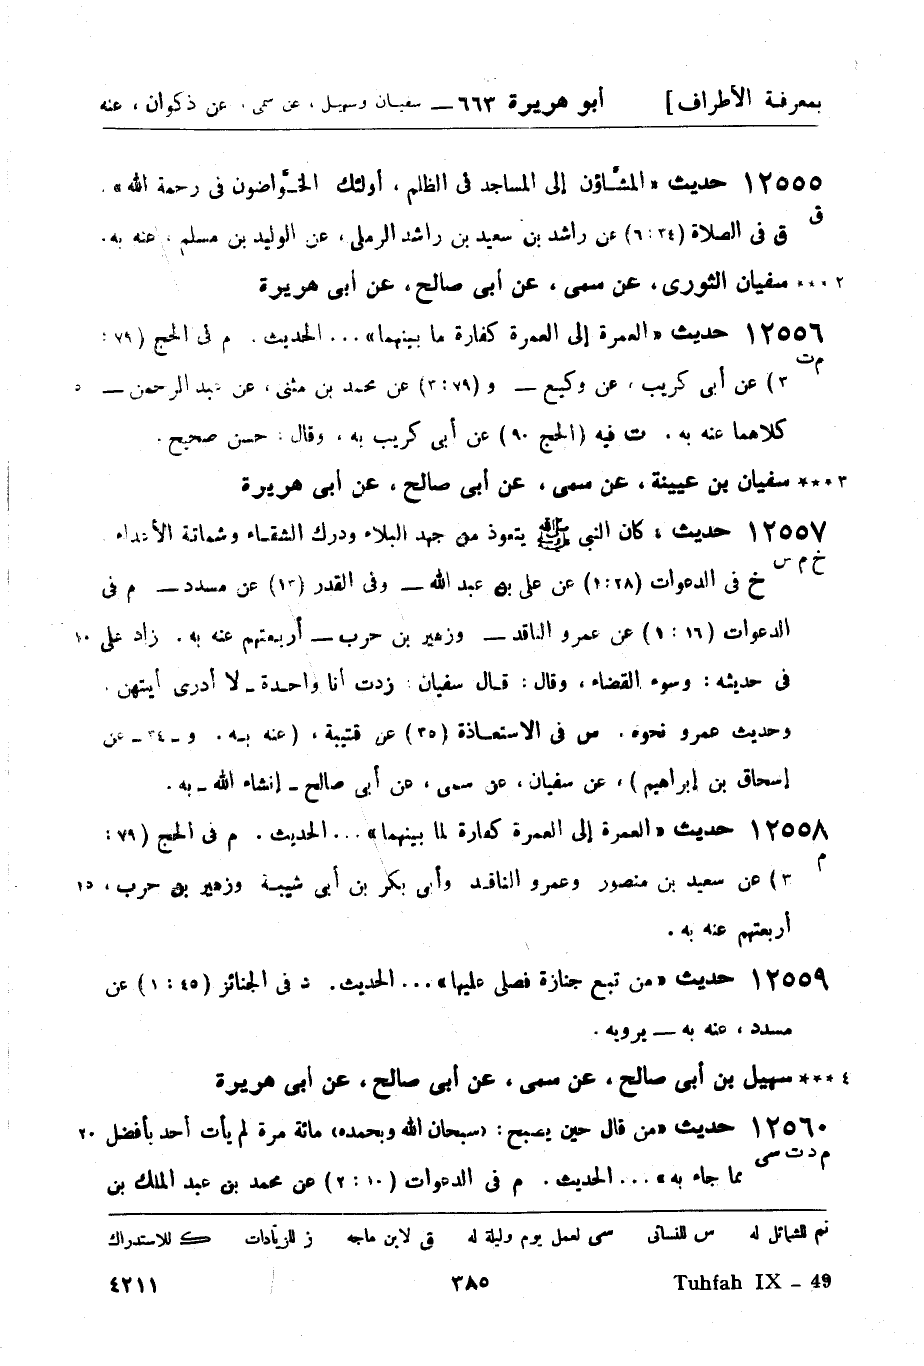 بمعرفة الأطراف ] أبو هريرة ٦٦٣ — سفيان وسهيل ، عن سمى ، عن ذكوان ، عنه
١٢٥٥٥ حديث «المشّاؤن إلى المساجد فى الظلم ، أولئك الخوّاضون فى رحمة الله» .
ق
ق فى الصلاة (٦:٣٤) عن راشد بن سعيد بن راشد الرملى ، عن الوليد بن مسلم ، عنه به .
٢ *** سفيان الثورى ، عن سمى ، عن أبى صالح ، عن أبى هريرة
١٢٥٥٦ حديث «العمرة إلى العمرة كفارة ما بينهما» ... الحديث . م فى الحج (٧٩ :
م ت
٣) عن أبى كريب ، عن وكيع — و (٣:٧٩) عن محمد بن مثنى ، عن عبد الرحمن — ٥
كلاهما عنه به . ت فيه (الحج ٩٠) عن أبى كريب به ، وقال : حسن صحيح .
٣ *** سفيان بن عيينة ، عن سمى ، عن أبى صالح ، عن أبى هريرة
١٢٥٥٧ حديث : كان النبى ﷺ يتعوذ من جهد البلاء ودرك الشقاء وشماتة الأعداء .
خ م س
خ فى الدعوات (١:٢٨) عن على بن عبد الله — وفى القدر (١٣) عن مسدد — م فى
الدعوات (١٦ : ١) عن عمرو الناقد — وزهير بن حرب — أربعتهم عنه به . زاد على ١٠
فى حديثه : وسوء القضاء ، وقال : قال سفيان : زدت أنا واحدة ـ لا أدرى أيتهن .
وحديث عمرو نحوه . س فى الاستعاذة (٣٥) عن قتيبة ، (عنه به . و ـ ٣٤ ـ عن
إسحاق بن إبراهيم) ، عن سفيان ، عن سمى ، عن أبى صالح ـ إنشاء الله ـ به .
١٢٥٥٨ حديث «العمرة إلى العمرة كفارة لما بينهما» ... الحديث . م فى الحج (٧٩ :
م
٣) عن سعيد بن منصور وعمرو الناقد وأبى بكر بن أبى شيبة وزهير بن حرب ، ١٥
أربعتهم عنه به .
١٢٥٥٩ حديث «من تبع جنازة فصلى عليها» ... الحديث . د فى الجنائز (٤٥ : ١) عن
مسدد ، عنه به — يرويه .
٤ *** سهيل بن أبى صالح ، عن سمى ، عن أبى صالح ، عن أبى هريرة
١٢٥٦٠ حديث «من قال حين يصبح : (سبحان الله وبحمده) مائة مرة لم يأت أحد بأفضل ٢٠
م د ت سى
مما جاء به» ... الحديث . م فى الدعوات (١٠ : ٢) عن محمد بن عبد الملك بن
تم للشمائل له س للنسائى سى لعمل يوم وليلة له ق لابن ماجه ز للزيادات ك للاستدراك
Tuhfah IX – 49 ٣٨٥ ٤٢١١